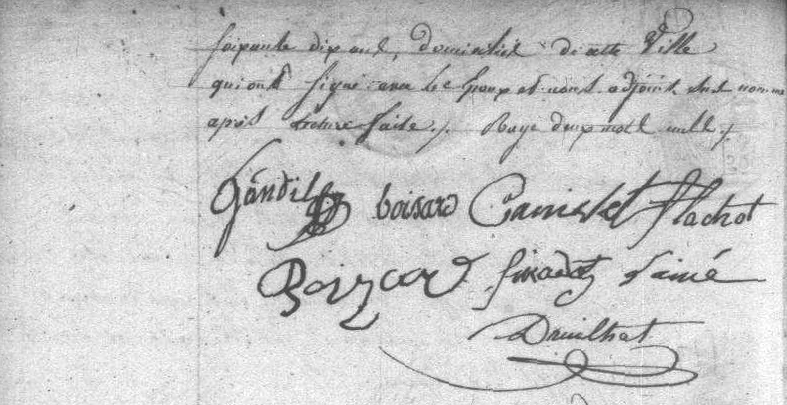 soixante dix ans, domicilié de cette Ville
qui ont signé avec les époux et nous adjoint susnommé
après lecture faite ./. Rayé deux mots nuls ./.
Gandil boisard Flachot
Boizard l'ainé
Druilhat